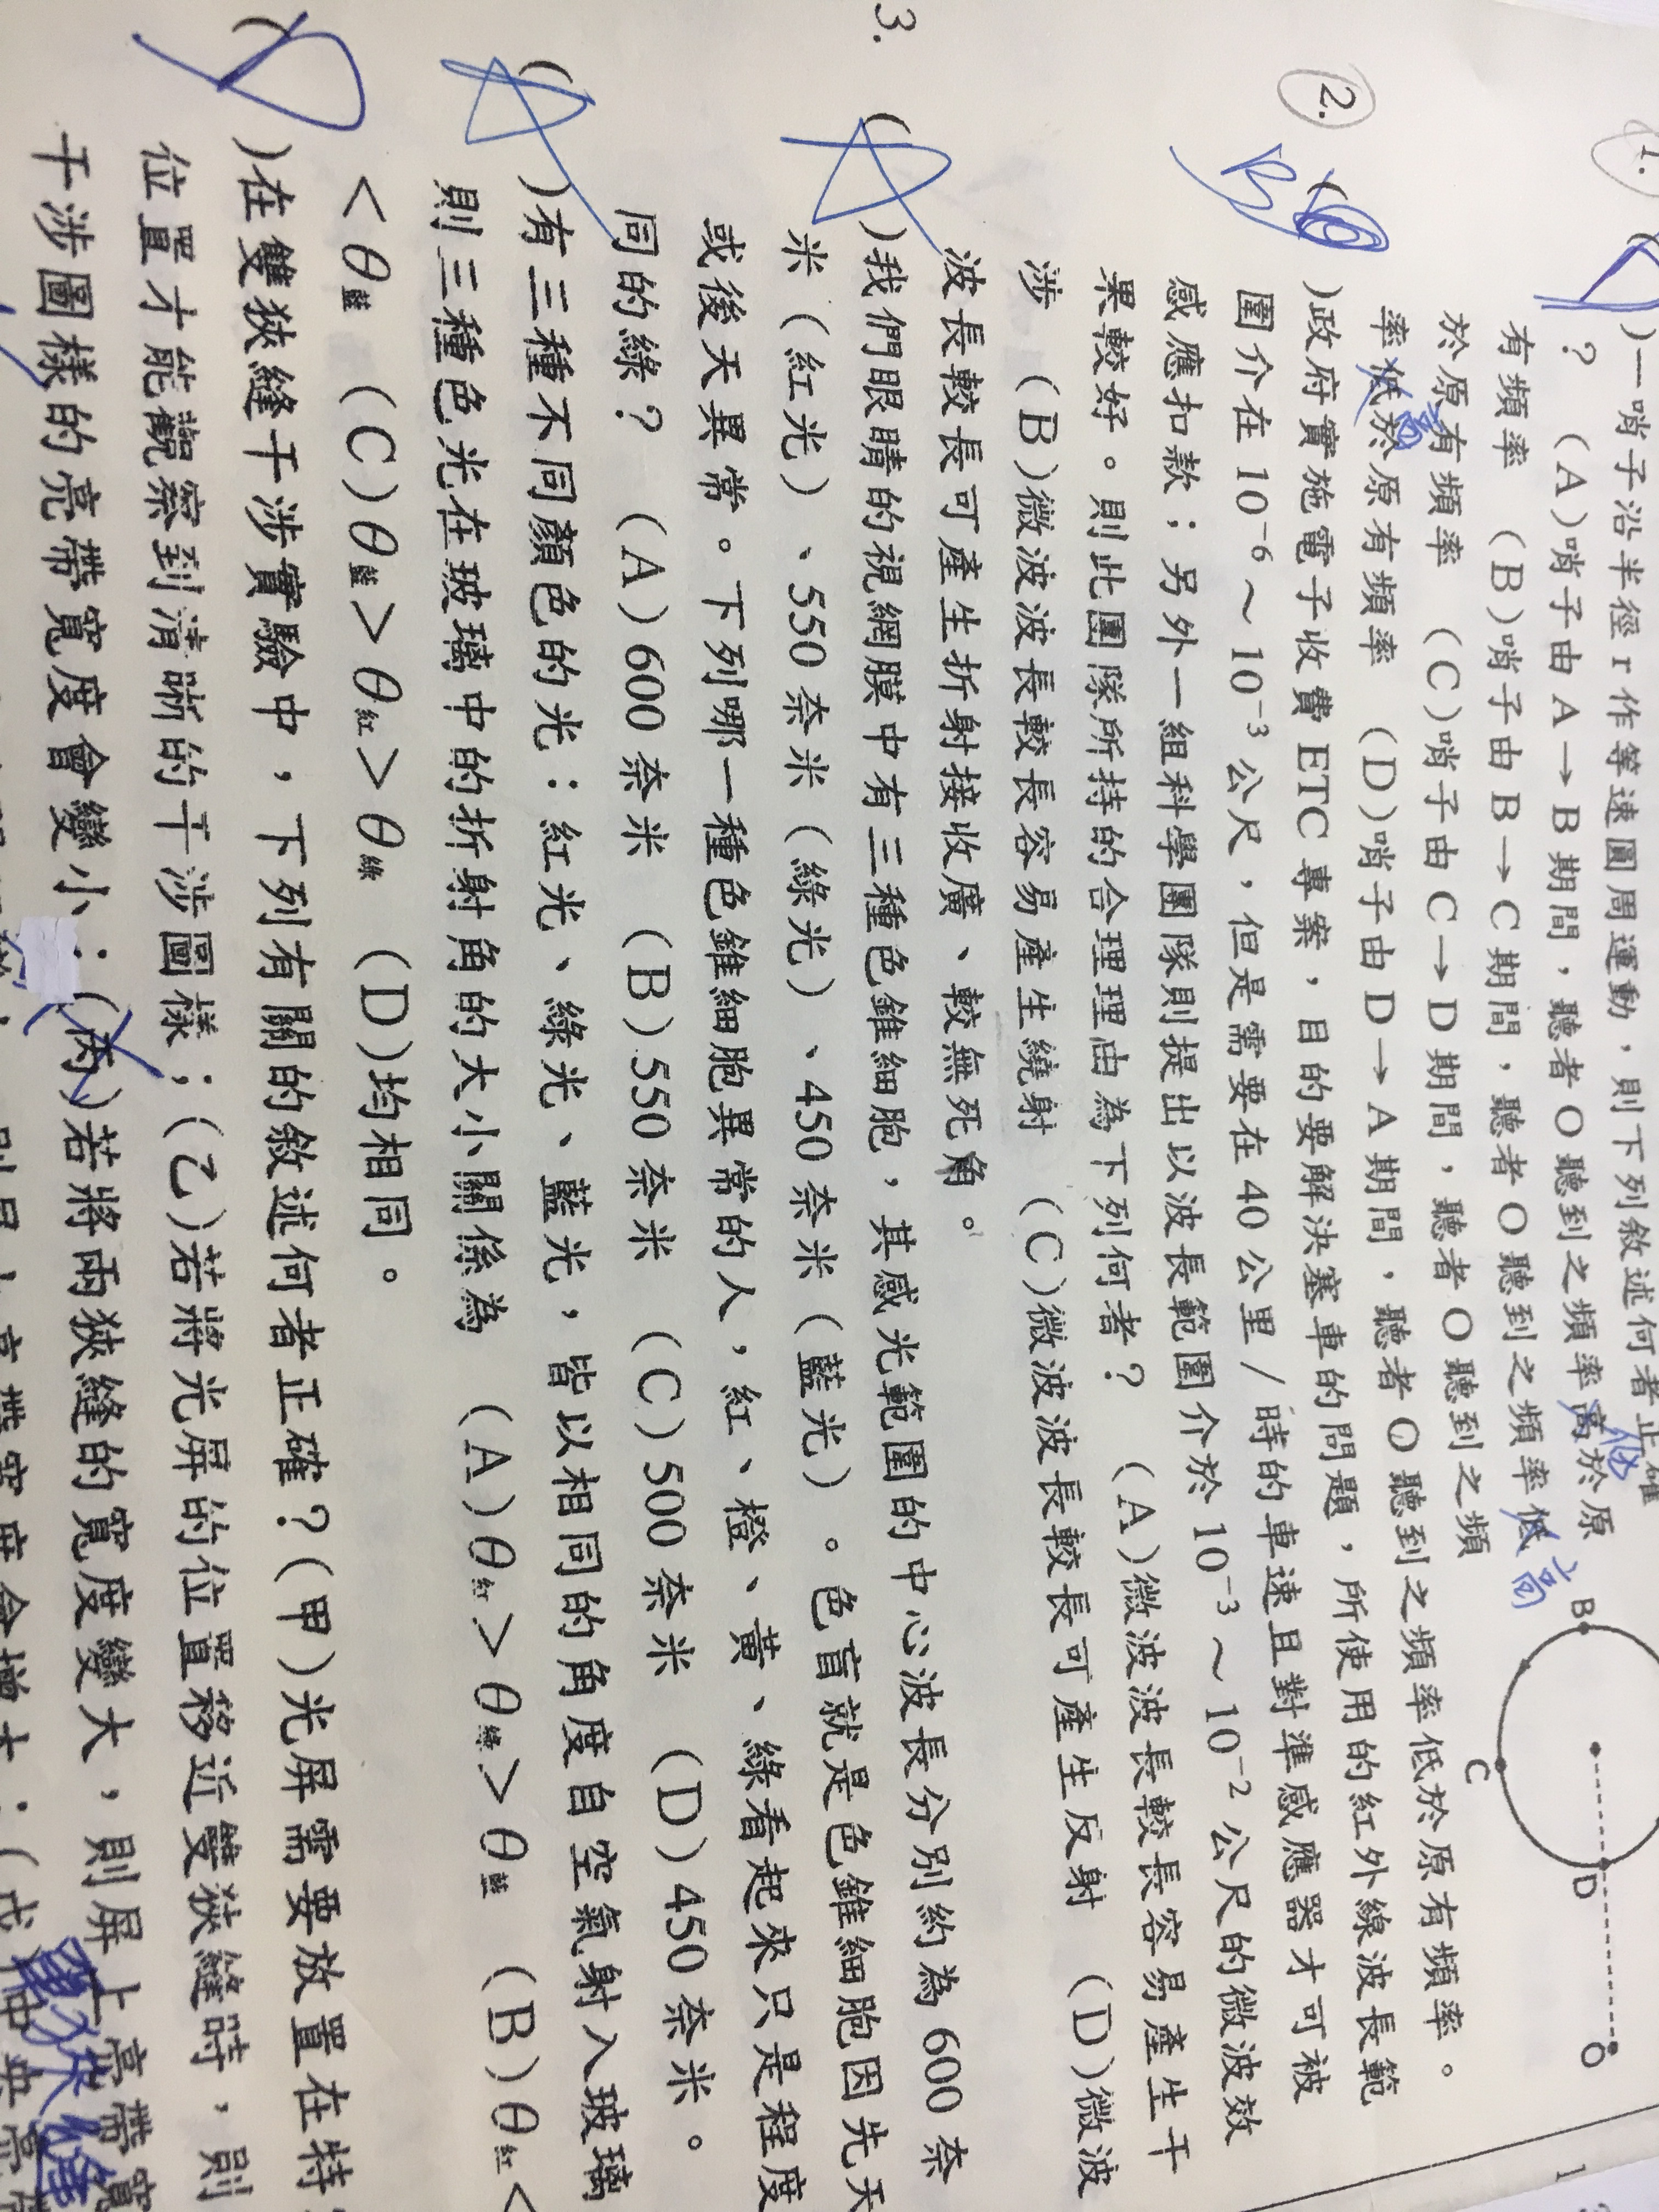 1. ( )一哨子沿半徑r作等速圓周運動，則下列敘述何者正確
？ (A)哨子由A→B期間，聽者O聽到之頻率高於原
有頻率 (B)哨子由B→C期間，聽者O聽到之頻率低 高
於原有頻率 (C)哨子由C→D期間，聽者O聽到之頻
率低於原有頻率 (D)哨子由D→A期間，聽者O聽到之頻率低於原有頻率。
B
C
D
O
2. B ( )政府實施電子收費ETC專案，目的要解決塞車的問題，所使用的紅外線波長範
圍介在10⁻⁶～10⁻³公尺，但是需要在40公里/時的車速且對準感應器才可被
感應扣款；另外一組科學團隊則提出以波長範圍介於10⁻³～10⁻²公尺的微波效
果較好。則此團隊所持的合理理由為下列何者？ (A)微波波長較長容易產生干
涉 (B)微波波長較長容易產生繞射 (C)微波波長較長可產生反射 (D)微波
波長較長可產生折射接收廣、較無死角。
3. (A)我們眼睛的視網膜中有三種色錐細胞，其感光範圍的中心波長分別約為600奈
米（紅光）、550奈米（綠光）、450奈米（藍光）。色盲就是色錐細胞因先天
或後天異常。下列哪一種色錐細胞異常的人，紅、橙、黃、綠看起來只是程度
同的綠？ (A)600奈米 (B)550奈米 (C)500奈米 (D)450奈米。
(A)有三種不同顏色的光：紅光、綠光、藍光，皆以相同的角度自空氣射入玻璃
則三種色光在玻璃中的折射角的大小關係為 (A)θ紅>θ綠>θ藍 (B)θ紅<
<θ藍 (C)θ藍>θ紅>θ綠 (D)均相同。
(D)在雙狹縫干涉實驗中，下列有關的敘述何者正確？(甲)光屏需要放置在特
位置才能觀察到清晰的干涉圖樣；(乙)若將光屏的位置移近雙狹縫時，則
干涉圖樣的亮帶寬度會變小；(丙)若將兩狹縫的寬度變大，則屏上亮帶寬